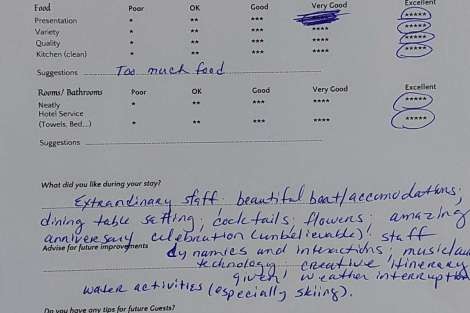 Food Poor OK Good Very Good Excellent
Presentation * ** *** *****
Variety * ** *** **** *****
Quality * ** *** **** *****
Kitchen (clean) * ** *** **** *****
Suggestions Too much food
Rooms/ Bathrooms Poor OK Good Very Good Excellent
Neatly * ** *** **** *****
Hotel Service
(Towels, Bed...) * ** *** **** *****
Suggestions
What did you like during your stay?
Extraordinary staff; beautiful boat/accomodations;
dining table setting; cocktails; flowers; amazing
anniversary celebration (unbelievable)! staff
Advise for future improvements dynamics and interactions; music/au
technology creative itinerary
given weather interruption
water activities (especially skiing).
Do you have any tips for future Guests?